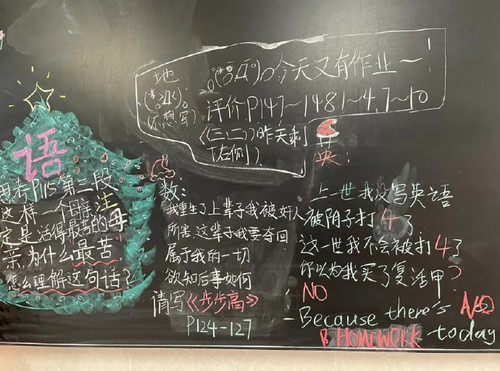 地
今天又有作业~
(*≧Д≦)
不想写
评价P147~148 1~4.7~10
《三、二》(昨天剩
下右侧)
语
思考P115第二段
这样一个
定是活得最苦的母
亲为什么最苦
怎么理解这句话?
数:
我重生了上辈子我被奸人
所害这辈子我要夺回
属于我的一切
欲知后事如何
请写《步步高》
P124-127
英:
上一世我没写英语
被阴子打4了
这一世我不会被打4了
你以为我买了复活甲?
NO
Because there's NO
HOMEWORK today